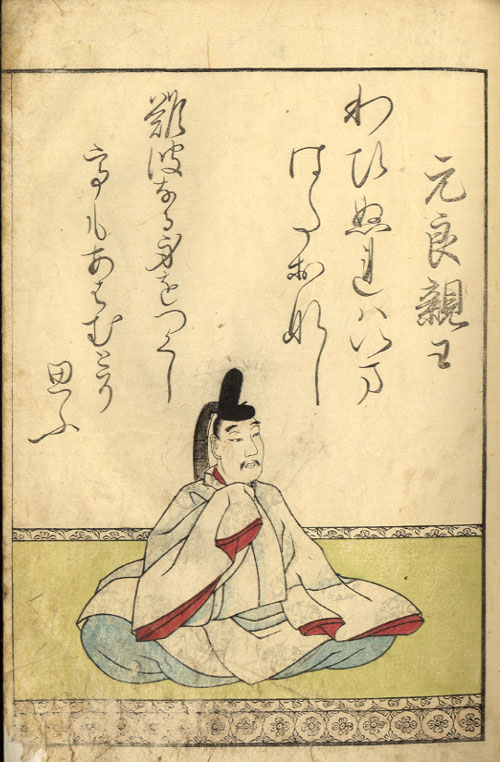 元良親王
わひぬれハいま
はたおなし
難波なる身をつくし
てもあはむとそ
思ふ